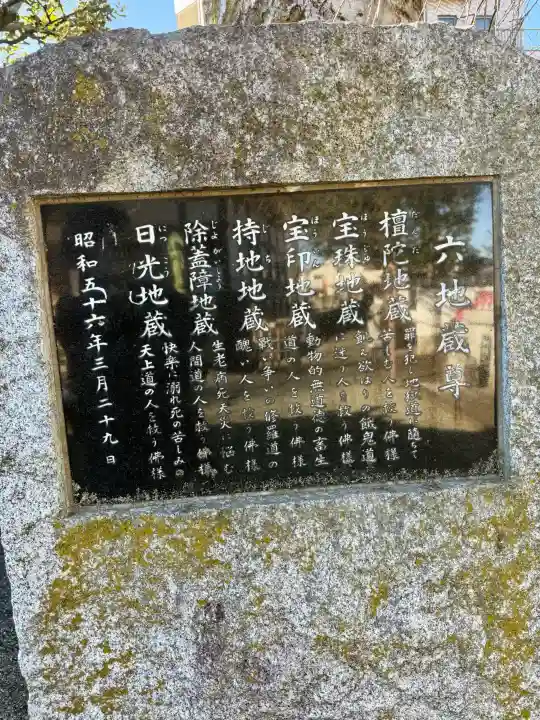 六地蔵尊
檀陀地蔵
だんだ
罪を犯し地獄道に墮ちて
苦しむ人を救う佛様
宝珠地蔵
ほうじゅ
飢え欲ばりの餓鬼道
に迷う人を救う佛様
宝印地蔵
ほういん
動物的無道德の畜生
道の人を救う佛様
持地地蔵
じち
戦い争いの修羅道の
醜い人を救う佛様
除蓋障地蔵
じょがいしょう
生老病死天災に悩む
人間道の人を救う佛様
日光地蔵
にっこう
快楽に溺れ死の苦しみの
天上道の人を救う佛様
昭和五十六年三月二十九日